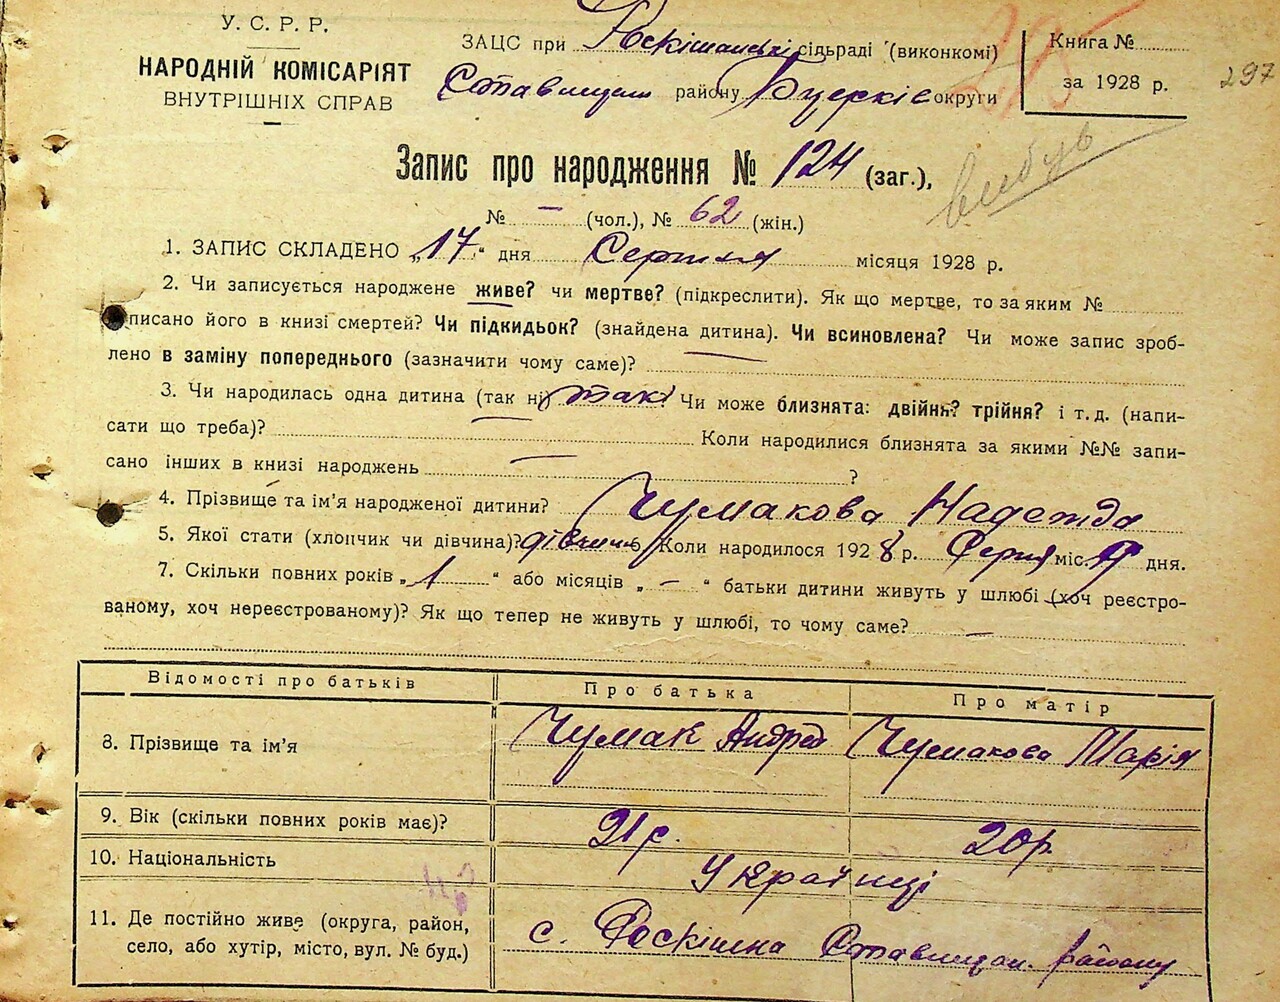 У. С. Р. Р.
НАРОДНІЙ КОМІСАРІЯТ
ВНУТРІШНІХ СПРАВ
ЗАЦС при Роскішанські сільраді (виконкомі)
Ставищан. району Бцерків округи
Книга №
за 1928 р.
297
Запис про народження № 124 (заг.),
вибув
№ — (чол.), № 62 (жін.)
1. ЗАПИС СКЛАДЕНО „17“ дня Серпня місяця 1928 р.
2. Чи записується народжене живе? чи мертве? (підкреслити). Як що мертве, то за яким №
писано його в книзі смертей? Чи підкидьок? (знайдена дитина). Чи всиновлена? Чи може запис зроб-
лено в заміну попереднього (зазначити чому саме)?
3. Чи народилась одна дитина (так ні) так. Чи може близнята: двійня? трійня? і т. д. (напи-
сати що треба)? Коли народилися близнята за якими №№ запи-
сано інших в книзі народжень — ?
4. Прізвище та ім’я народженої дитини? Чумакова Надежда
5. Якої стати (хлопчик чи дівчина)? дівчина 6. Коли народилося 1928 р. Серпня міс. 9 дня.
7. Скільки повних років „1“ або місяців „—“ батьки дитини живуть у шлюбі (хоч реєстро-
ваному, хоч нереєстрованому)? Як що тепер не живуть у шлюбі, то чому саме? —
Відомості про батьків Про батька Про матір
8. Прізвище та ім’я Чумак Андрей Чумакова Марія
9. Вік (скільки повних років має)? 21 р. 20 р.
10. Національність Українці
11. Де постійно живе (округа, район,
село, або хутір, місто, вул. № буд.) с. Роскішна Ставищан. району